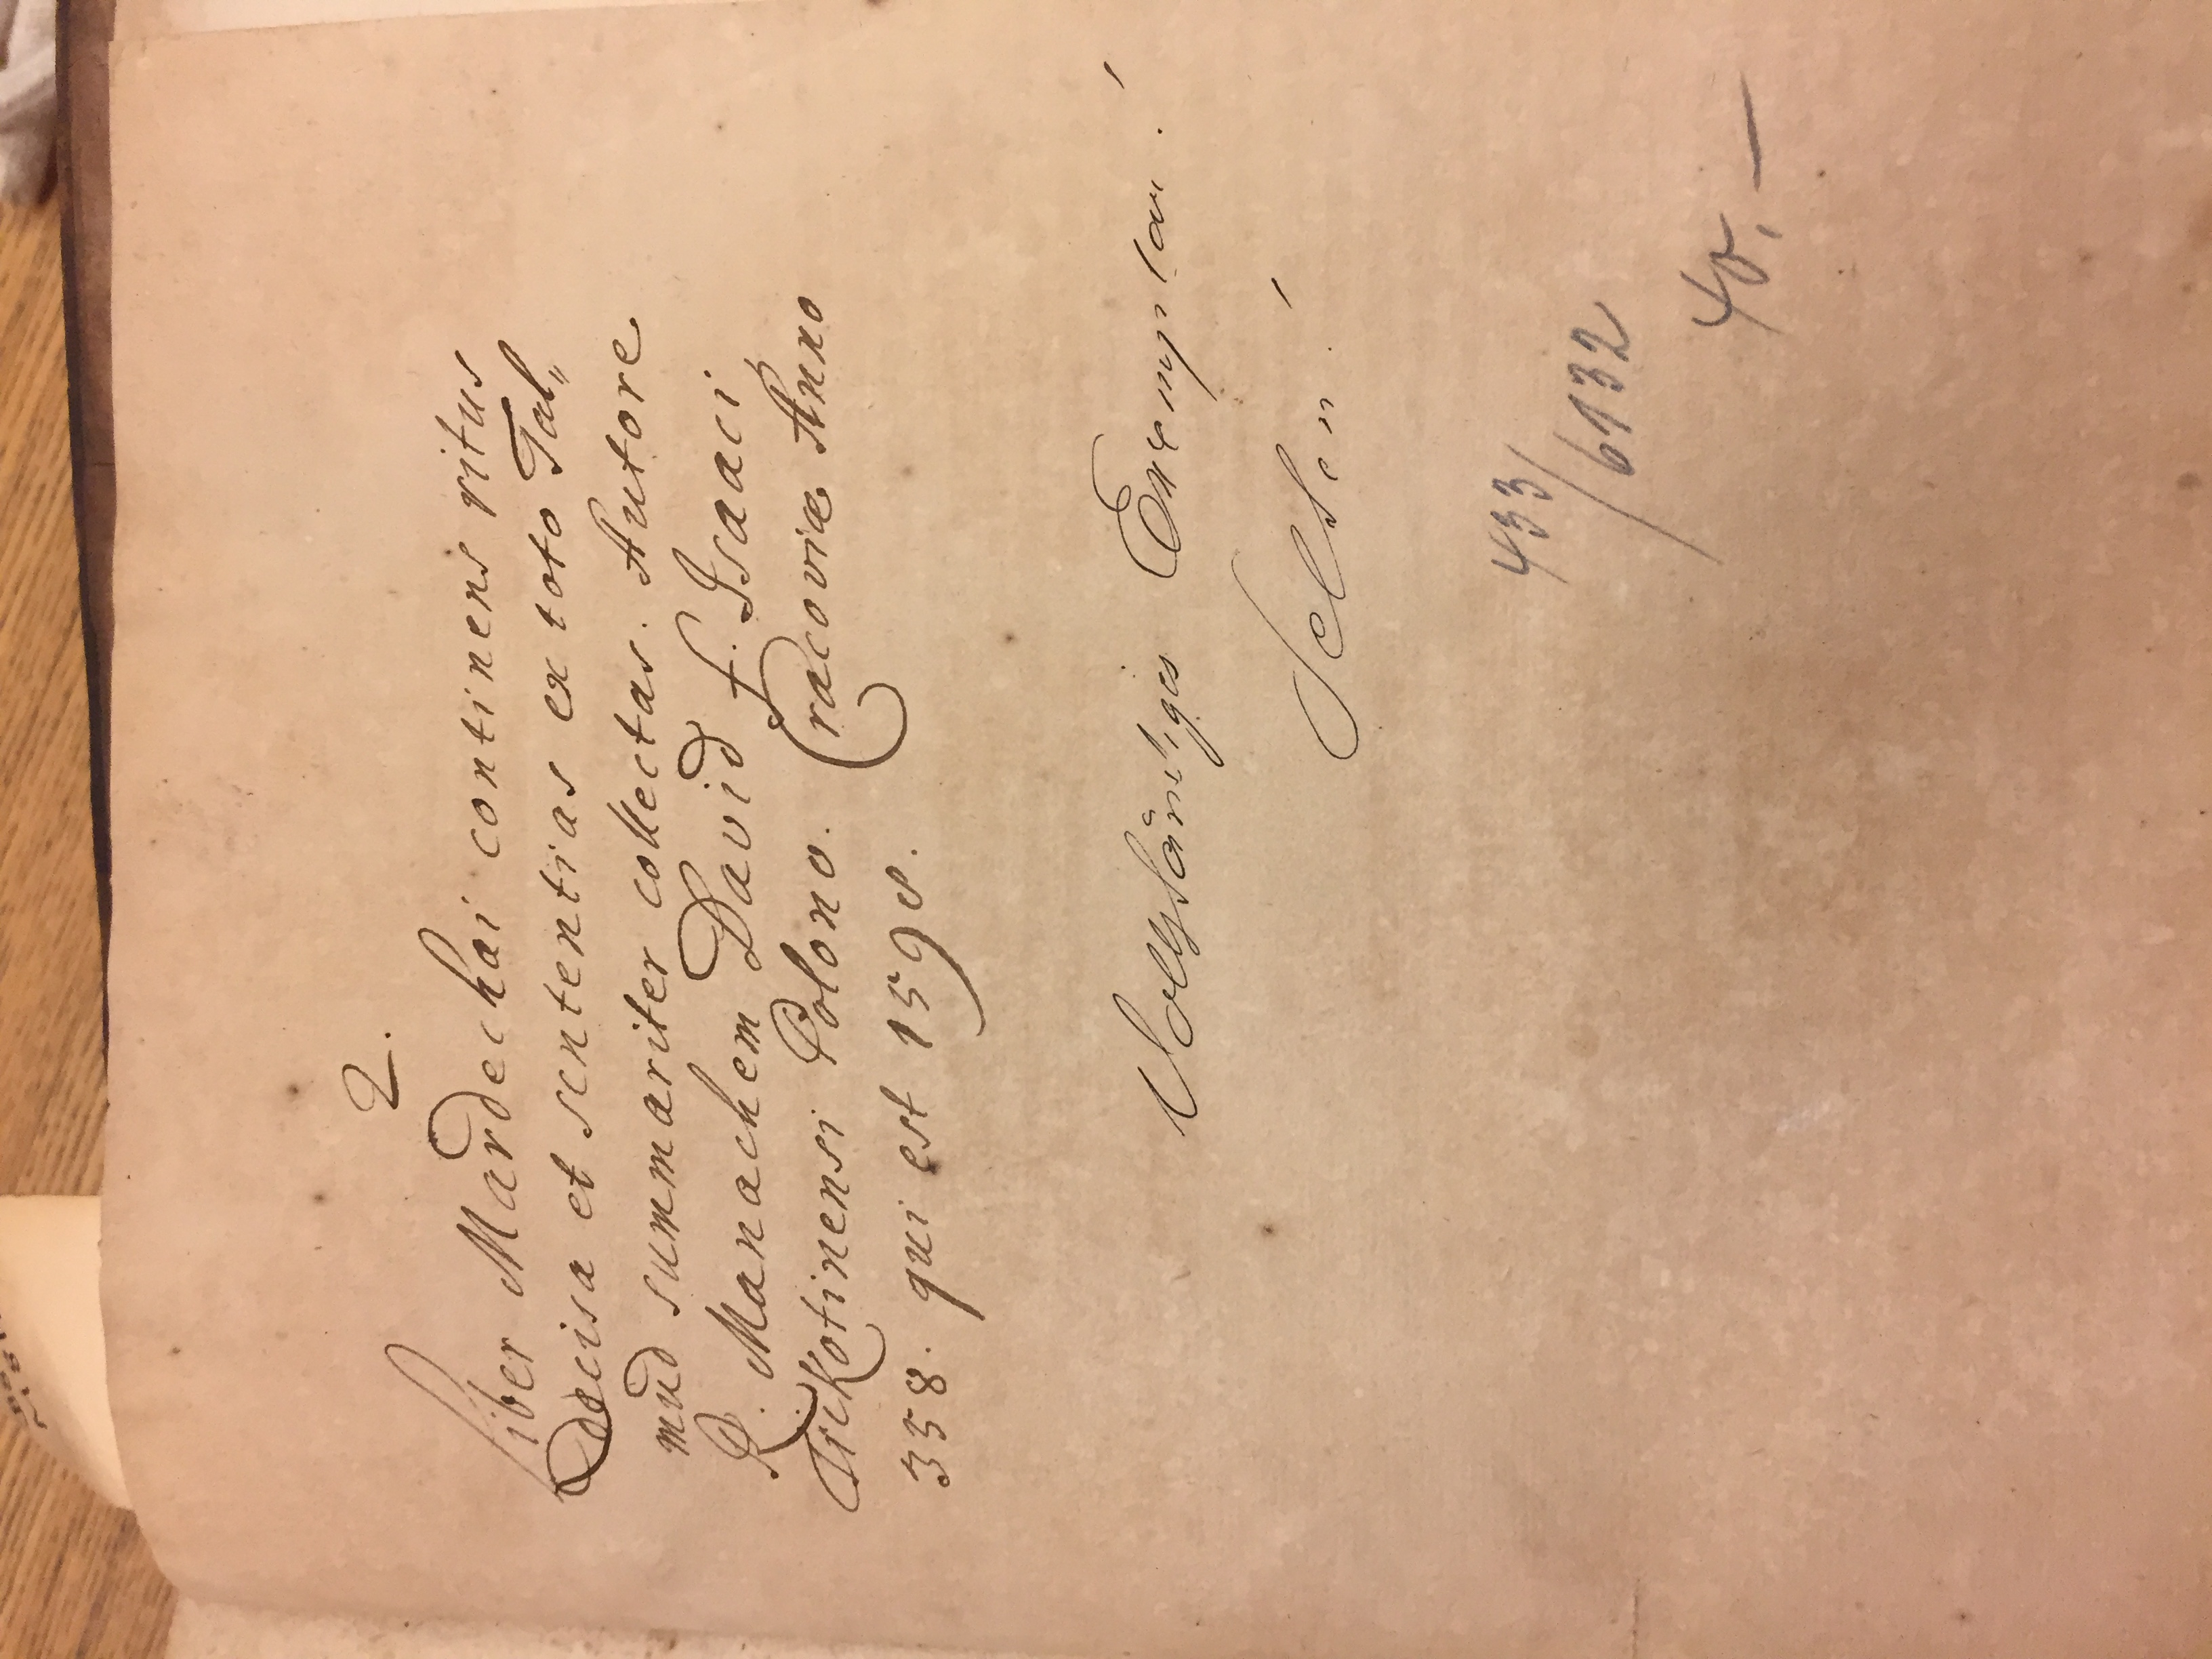 2.
Liber Mardechai continens ritus
decisa et sententias ex toto Tal„
mud summariter collectas. Autore
R. Manachem David f. Isaaci,
Trikotinensi Polono. Cracoviæ Anno
358. qui est 1598.
Vollständiges Exemplar!
Selten!
433/
6132
40,—